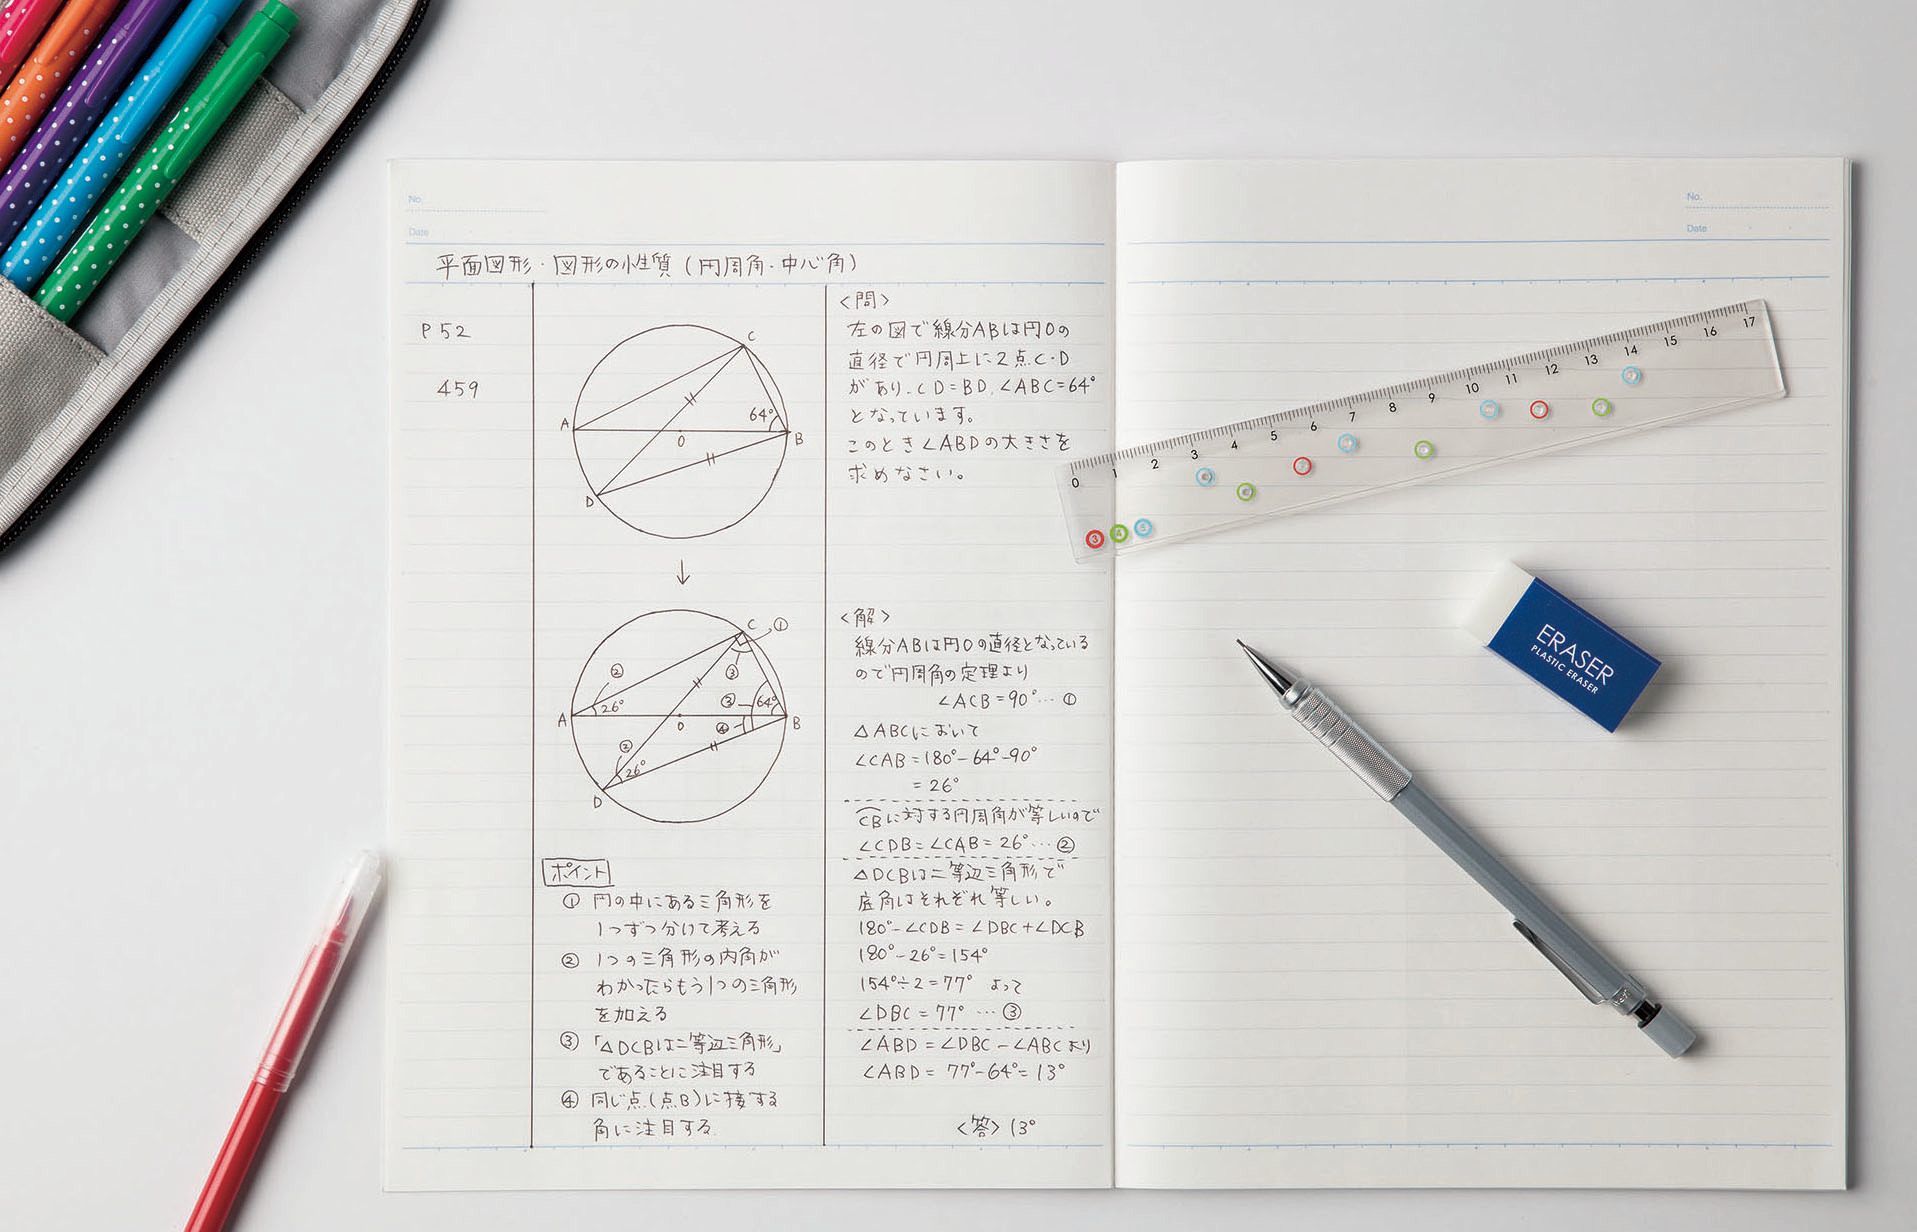 No.
Date
平面図形・図形の性質(円周角・中心角)
P52
459
C
A
64°
B
O
D
C
①
②
③
③
64°
26°
A
O
B
④
②
26°
D
ポイント
① 円の中にある三角形を
1つずつ分けて考える
② 1つの三角形の内角が
わかったらもう1つの三角形
を加える
③ 「△DCBは二等辺三角形」
であることに注目する
④ 同じ点(点B)に接する
角に注目する.
<問>
左の図で線分ABは円Oの
直径で円周上に2点C・D
があり、CD=BD、∠ABC=64°
となっています。
このとき∠ABDの大きさを
求めなさい。
<解>
線分ABは円Oの直径となっている
ので円周角の定理より
∠ACB=90°…①
△ABCにおいて
∠CAB=180°-64°-90°
=26°
CBに対する円周角が等しいので
∠CDB=∠CAB=26°…②
△DCBは二等辺三角形で
底角はそれぞれ等しい。
180°-∠CDB=∠DBC+∠DCB
180°-26°=154°
154°÷2=77° よって
∠DBC=77° …③
∠ABD=∠DBC-∠ABCより
∠ABD=77°-64°=13°
<答>13°
No.
Date
0 1 2 3 4 5 6 7 8 9 10 11 12 13 14 15 16 17
3 4 5
ERASER
PLASTIC ERASER